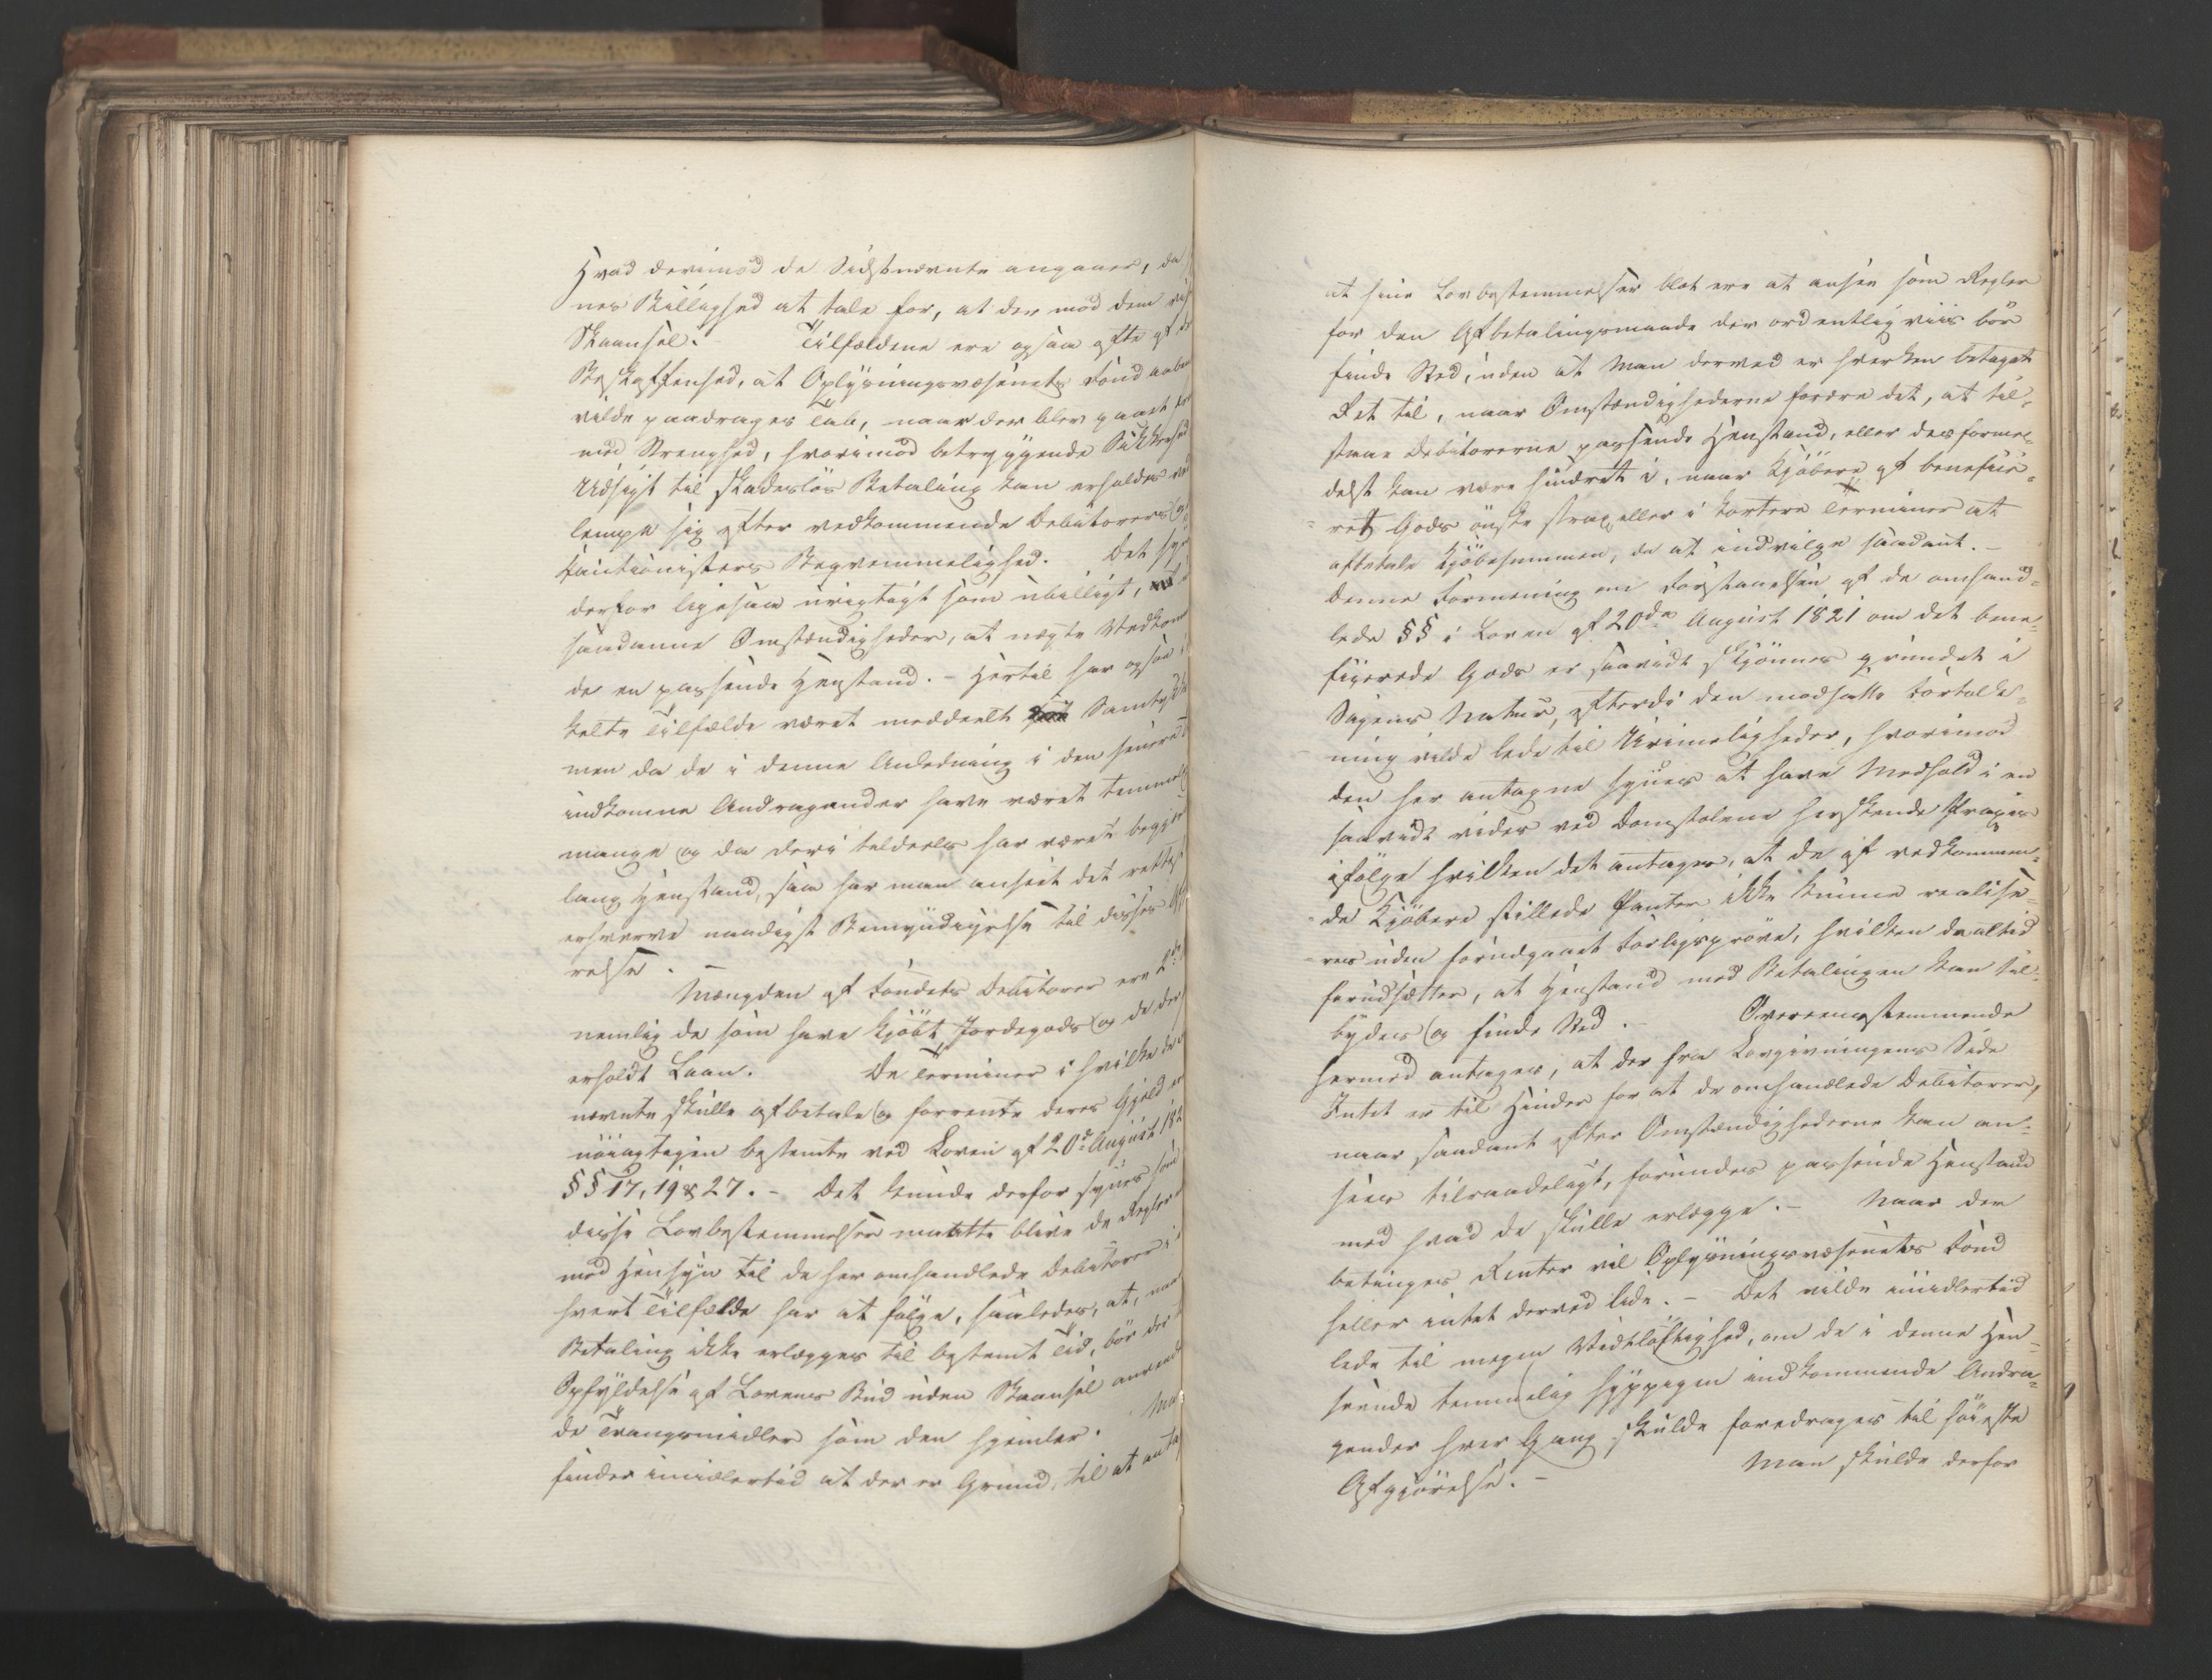 Hvad derimod de Sidstnævnte angaaer, da
nes Billighed at tale for, at der mod dem vis
Skaansel. - Tilfældene ere ogsaa ofte af de
Beskaffenhed, at Oplysningsvæsenets Fond aaben
vilde paadrages Tab, naar der blev gaaet frem
med Strenghed, hvorimod betryggende Sikkerhed
Udsigt til skadesløs Betaling kan erholdes ved
lempe sig efter vedkommende Debitorers og
Cautionisters Beqvemmelighed. Det syn
derfor ligesaa urigtigt som ubilligt,
saadanne Omstændigheder, at nægte Vedkom
de en passende Henstand. - Hertil har ogsaa i
kelte Tilfælde været meddeelt Samtykke
men da de i denne Anledning i den senere T
indkomne Andragender have været temmel
mange og da deri tildeels har været begjær
lang Henstand, saa har man anseet det rettest
erhverve naadigst Bemyndigelse til disses Afgjø
relse. -
Mængden af Fondets Debitorer ere 2de
nemlig de som have kjøbt Jordegods og de der
erholdt Laan. De Terminer i hvilke de
nævnte skulle afbetale og forrente deres Gjeld er
nöiagtigen bestemte ved Loven af 20de August 182
§§ 17, 19 & 27. - Det kunde derfor synes som
disse Lovbestemmelser maatte blive de Regler
med Hensyn til de her omhandlede Debitorer i
hvert Tilfælde har at fölge, saaledes, at, naar
Betaling ikke erlægges til bestemt Tid, bör der t
Opfyldelse af Lovens Bud uden Skaansel anvend
de Tvangsmidler som den hjemler. Ma
finder imidlertid at der er Grund, til at anta
at hine Lovbestemmelser blot ere at ansee som Regler
for den Afbetalingsmaade der ordentligviis bör
finde Sted, uden at Man derved er hverken betaget
Ret til, naar Omstændighederne fordre det, at til=
staae Debitorerne passende Henstand, eller desformed=
delst kan være hindret i, naar Kjöbere af beneficie=
=ret Gods önske strax eller i kortere Terminer at
afbetale Kjöbesummen, da at indvilge saadant. -
Denne Formening om Forstaaelsen af de omhand=
lede §§ i Loven af 20de August 1821 om det bene=
ficerede Gods er saavidt skjönnes grundet i
Sagens Natur, efterdi den modsatte Fortolk=
ning vilde lede til Urimeligheder, hvorimod
den her antagne synes at have Medhold i en
saavidt vides ved Domstolene herskende Praxis
ifölge hvilken det antages, at de af vedkommen=
de Kjöbere stillede Panter ikke kunne realise=
=res uden forudgaaet Forligspröve, hvilken da altid
forudsætter, at Henstand med Betalingen kan til=
bydes og finde Sted. - Overeensstemmende
hermed antages, at der fra Lovgivningens Side
Intet er til Hinder for at de omhandlede Debitorer,
naar saadant efter Omstændighederne kan an=
sees tilraadeligt, forundes passende Henstand
med hvad de skulle erlægge. - Naar der
betinges Renter vil Oplysningsvæsenets Fond
heller intet derved lide. - Det vilde imidlertid
lede til megen Vidtlöftighed, om de i denne Hen=
seende temmelig hyppigen indkommende Andra=
gender hver Gang skulde foredrages til höieste
Afgjörelse. - Man skulde derfor